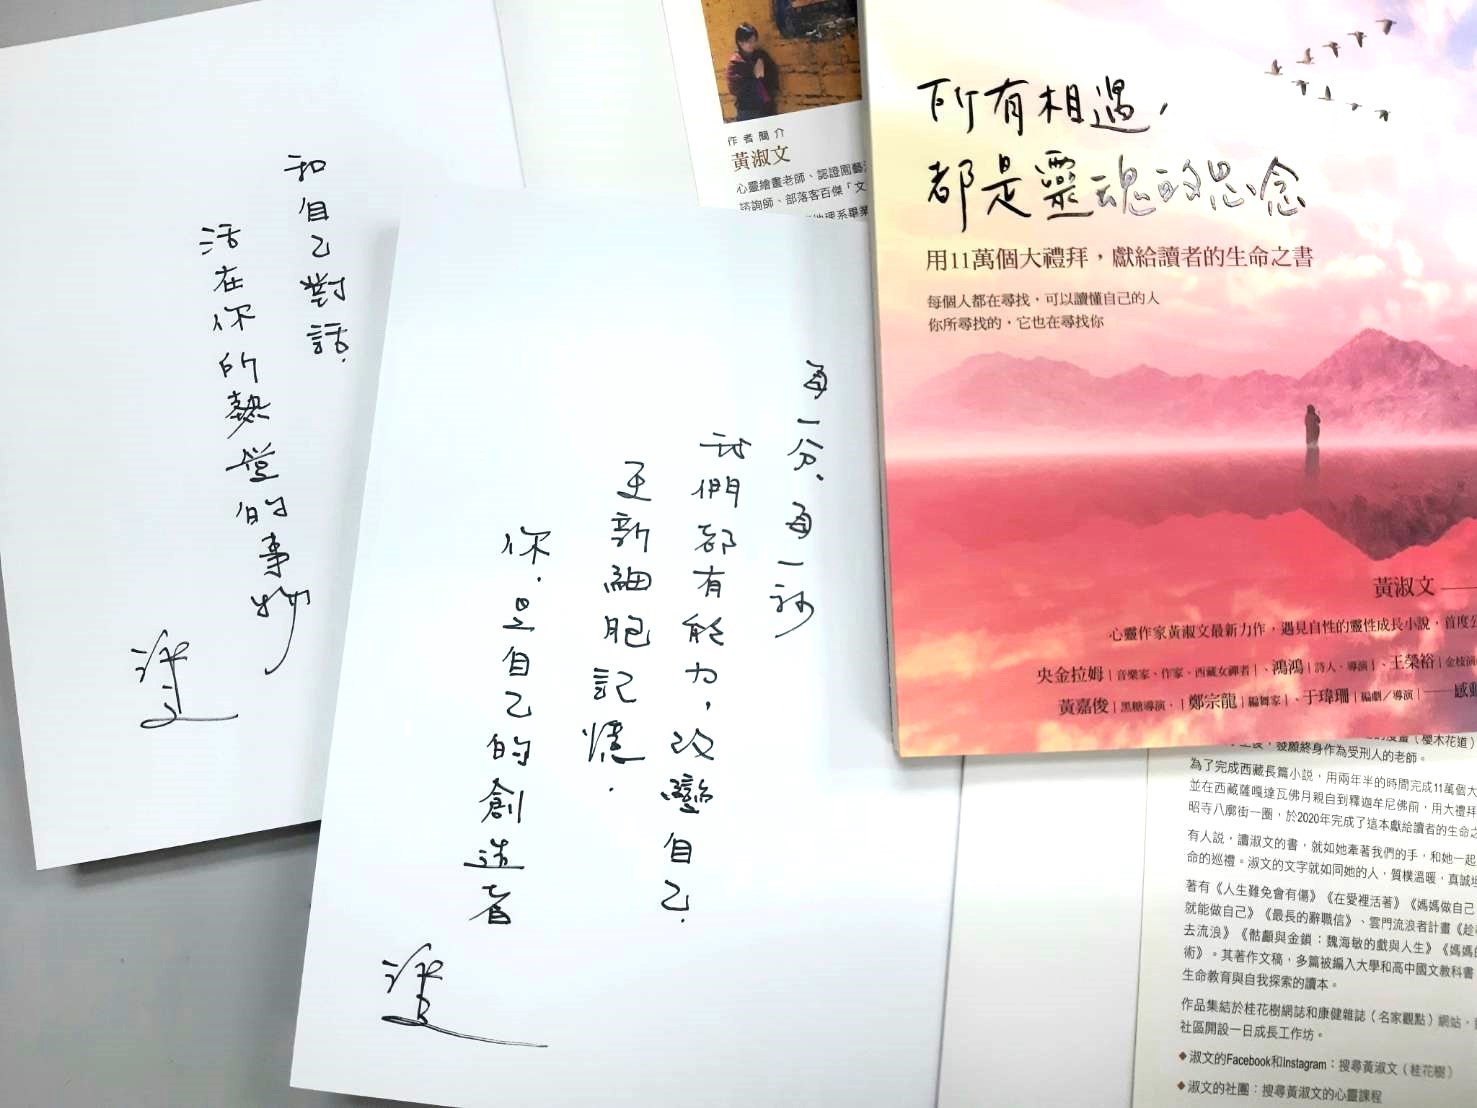 和自己對話.
活在你的熱
的事物
每一分、每一秒
我們都有能力，改變自己.
更新細胞記憶.
你.是自己的創造者
作者簡介
黃淑文
心靈繪畫老師、認證園藝
諮詢師、部落客百傑「文
地理系畢業
所有相遇，
都是靈魂的思念
用11萬個大禮拜，獻給讀者的生命之書
每個人都在尋找，可以讀懂自己的人
你所尋找的，它也在尋找你
黃淑文
心靈作家黃淑文最新力作，遇見自性的靈性成長小說，首度公
央金拉姆|音樂家、作家、西藏女禪者|、鴻鴻|詩人、導演|、王榮裕|金枝演
黃嘉俊|黑糖導演.|鄭宗龍|編舞家|、于瑋珊|編劇／導演|——感動
漫畫（櫻木花道）
後，發願終身作為受刑人的老師。
為了完成西藏長篇小說，用兩年半的時間完成11萬個大
並在西藏薩嘎達瓦佛月親自到釋迦牟尼佛前，用大禮拜
昭寺八廓街一圈，於2020年完成了這本獻給讀者的生命之
有人說，讀淑文的書，就如她牽著我們的手，和她一起
命的巡禮。淑文的文字就如同她的人，質樸溫暖，真誠
著有《人生難免會有傷》《在愛裡活著》《媽媽做自己
就能做自己》《最長的辭職信》、雲門流浪者計畫《趁
去流浪》《骷顱與金鎖：魏海敏的戲與人生》《媽媽的
術》。其著作文稿，多篇被編入大學和高中國文教科書
生命教育與自我探索的讀本。
作品集結於桂花樹網誌和康健雜誌（名家觀點）網站，
社區開設一日成長工作坊。
◆淑文的Facebook和Instagram：搜尋黃淑文（桂花樹）
◆淑文的社團：搜尋黃淑文的心靈課程